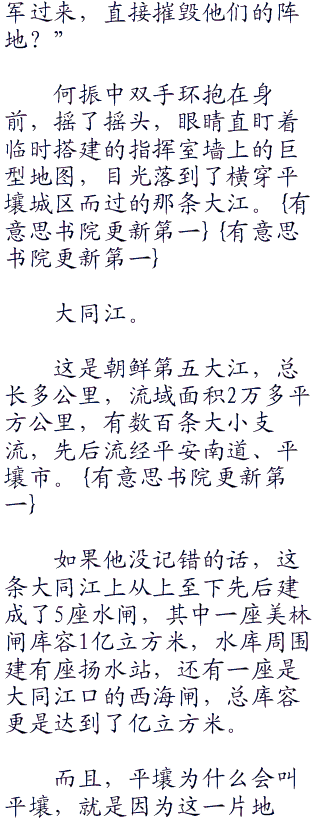 军过来，直接摧毁他们的阵
地？”
何振中双手环抱在身
前，摇了摇头，眼睛直盯着
临时搭建的指挥室墙上的巨
型地图，目光落到了横穿平
壤城区而过的那条大江。{有
意思书院更新第一}{有意思
书院更新第一}
大同江。
这是朝鲜第五大江，总
长多公里，流域面积2万多平
方公里，有数百条大小支
流，先后流经平安南道、平
壤市。{有意思书院更新第
一}
如果他没记错的话，这
条大同江上从上至下先后建
成了5座水闸，其中一座美林
闸库容1亿立方米，水库周围
建有座扬水站，还有一座是
大同江口的西海闸，总库容
更是达到了亿立方米。
而且，平壤为什么会叫
平壤，就是因为这一片地